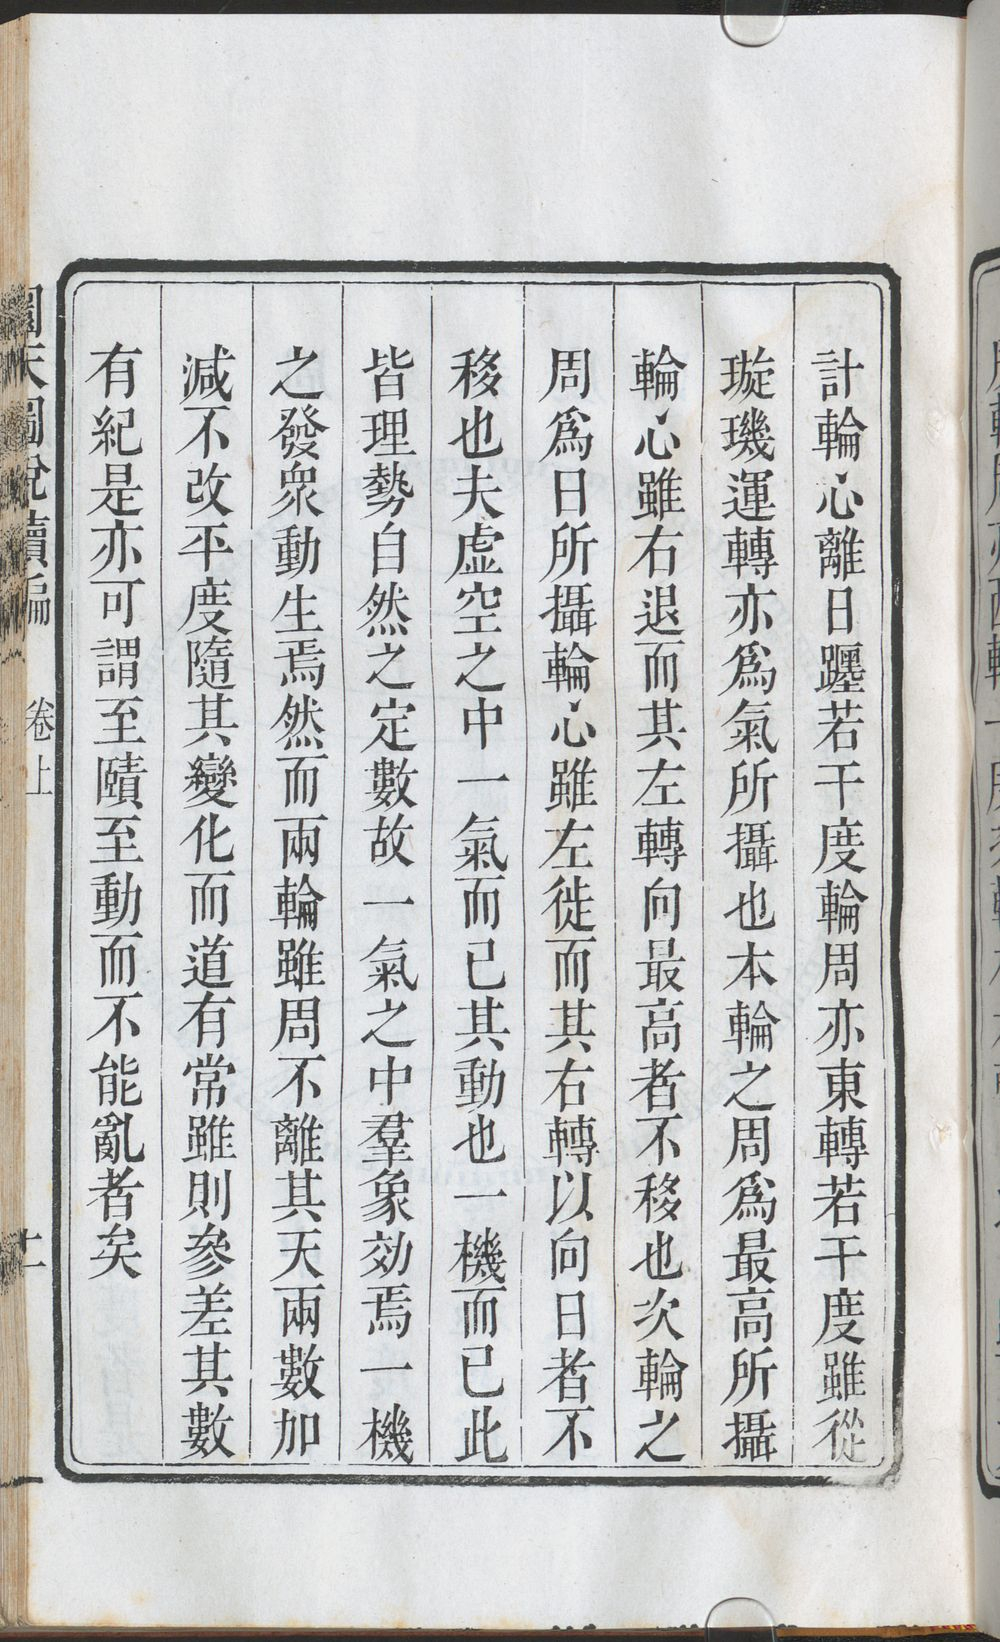 計輪心離日躔若干度輪周亦東轉若干度雖從
璇璣運轉亦爲氣所攝也本輪之周爲最高所攝
輪心雖右退而其左轉向最高者不移也次輪之
周爲日所攝輪心雖左徙而其右轉以向日者不
移也夫虛空之中一氣而已其動也一機而已此
皆理勢自然之定數故一氣之中羣象効焉一機
之發衆動生焉然而兩輪雖周不離其天兩數加
減不改平度隨其變化而道有常雖則參差其數
有紀是亦可謂至賾至動而不能亂者矣
圜天圖說續編 卷上